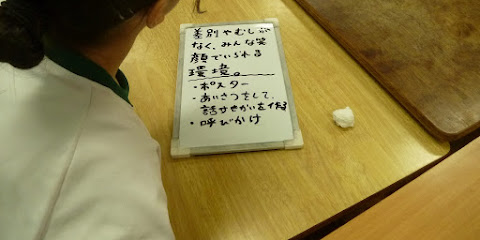 差別やむしが
なく、みんな笑
顔でいられる
環境。
・ポスター
・あいさつをして、
話せせかいを作る
・呼びかけ